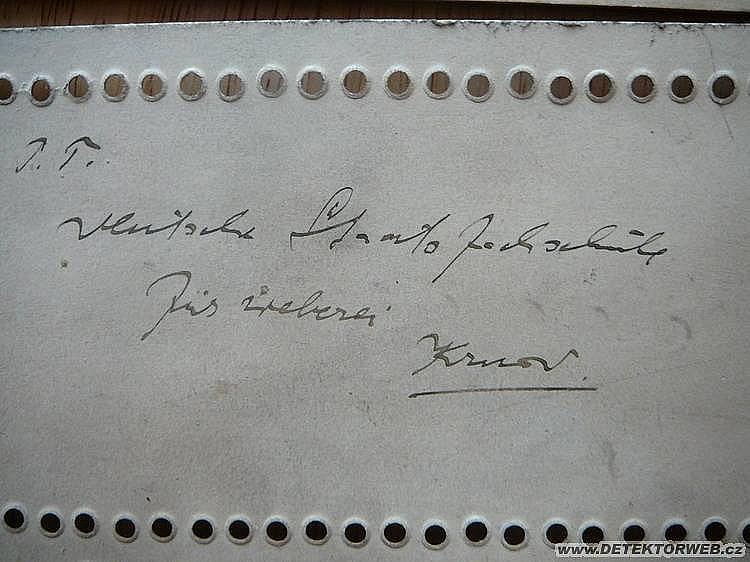 P. T.
Deutsche Staats Fachschule
für Weberei
Krnov.
www.DETEKTORWEB.cz